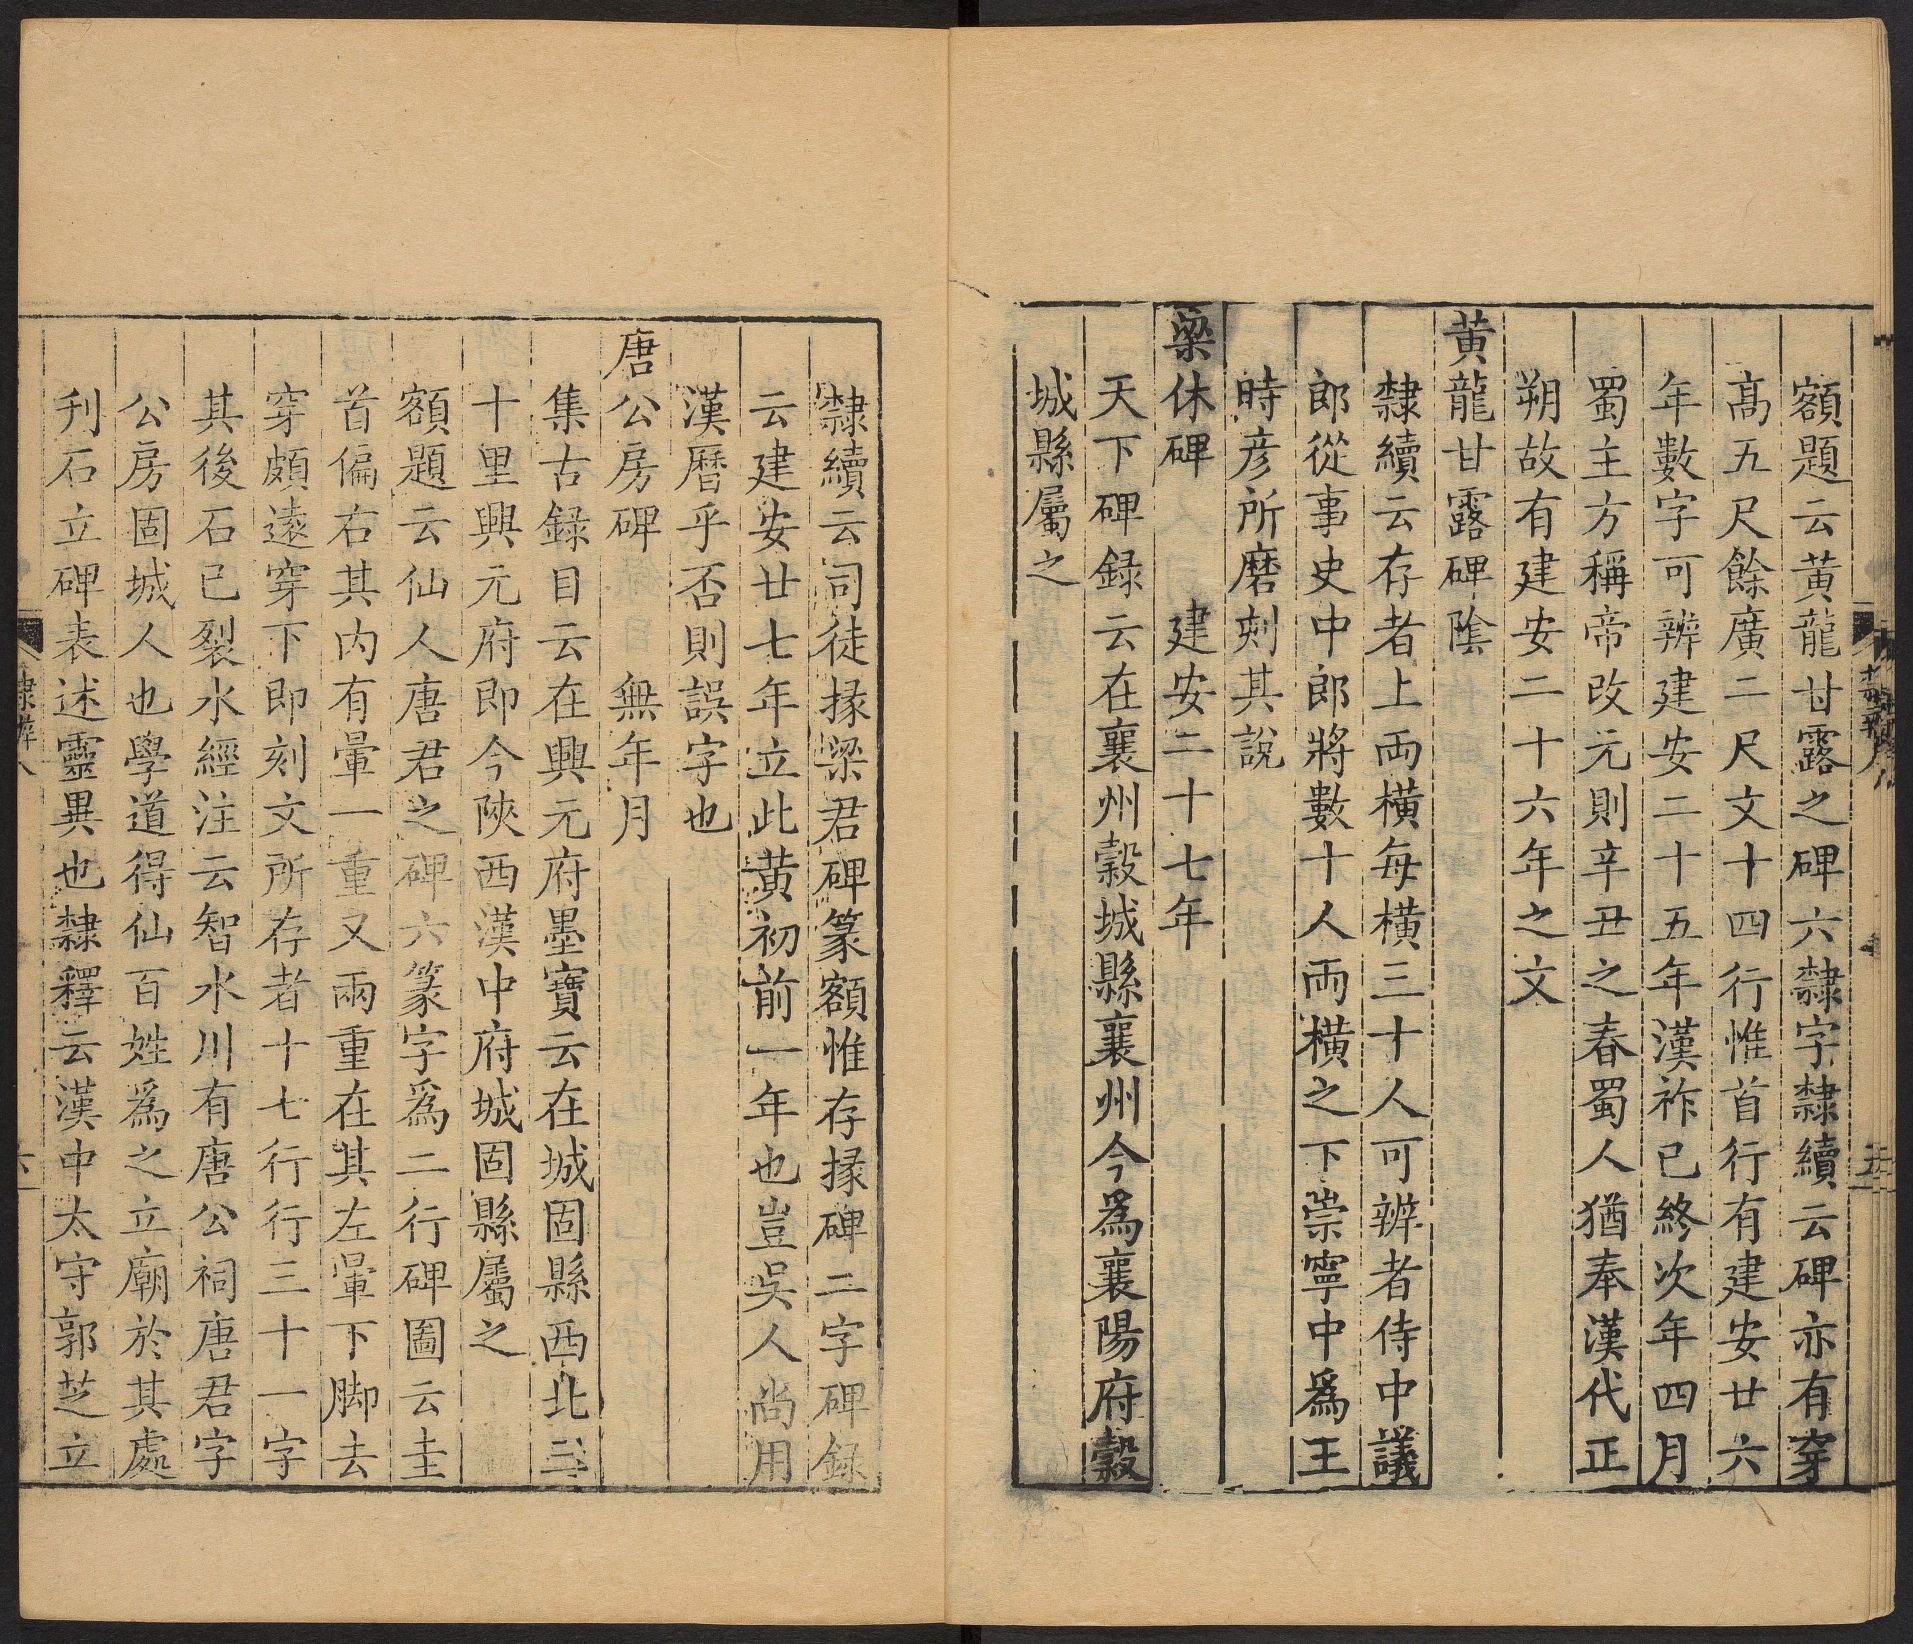 額題云黃龍甘露之碑六隸字隸續云碑亦有穿
高五尺餘廣二尺文十四行惟首行有建安廿六
年數字可辨建安二十五年漢祚已終次年四月
蜀主方稱帝改元則辛丑之春蜀人猶奉漢代正
朔故有建安二十六年之文
黃龍甘露碑陰
隸續云存者上兩橫每橫三十人可辨者侍中議
郎從事史中郎將數十人兩橫之下崇寧中為王
時彥所磨刻其說
梁休碑 建安二十七年
天下碑録云在襄州穀城縣襄州今為襄陽府穀
城縣屬之
隸續云司徒掾梁君碑篆額惟存掾碑二字碑録
云建安廿七年立此黃初前一年也豈吳人尚用
漢曆乎否則誤字也
唐公房碑 無年月
集古録目云在興元府墨寶云在城固縣西北三
十里興元府即今陝西漢中府城固縣屬之
額題云仙人唐君之碑六篆字為二行碑圖云圭
首偏右其内有暈一重又兩重在其左暈下脚去
穿頗遠穿下即刻文所存者十七行行三十一字
其後石已裂水經注云智水川有唐公祠唐君字
公房固城人也學道得仙百姓為之立廟於其處
刋石立碑表述靈異也隸釋云漢中太守郭芝立
隸辨八
六